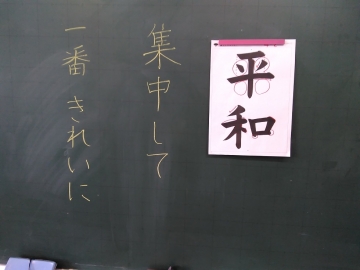 平和
集中して
一番 きれいに